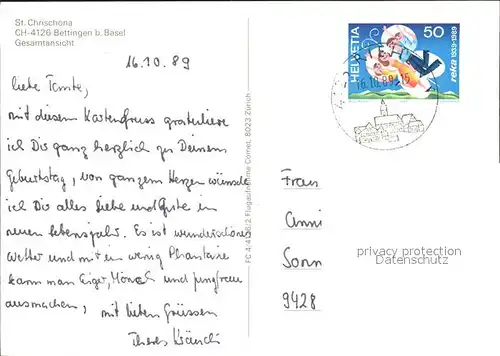 St. Chrischona
CH-4126 Bettingen b. Basel
Gesamtansicht
16.10.89
Liebe Tante,
mit diesem Kartengruss gratuliere
ich Dir ganz herzlich zu Deinem
Geburtstag, von ganzem Herzen wünsche
ich Dir alles Liebe und Gute im
neuen Lebensjahr. Es ist wunderschönes
Wetter und mit ein wenig Phantasie
kann man Eiger, Mönch und Jungfrau
ausmachen, mit lieben Grüssen
Theres
FC 4-4126/2 Flugaufnahme Comet, 8023 Zürich
HELVETIA
50
reka 1939-1989
16.10.89-15
Frau
Anni
Sonn
9428
privacy protection
Datenschutz